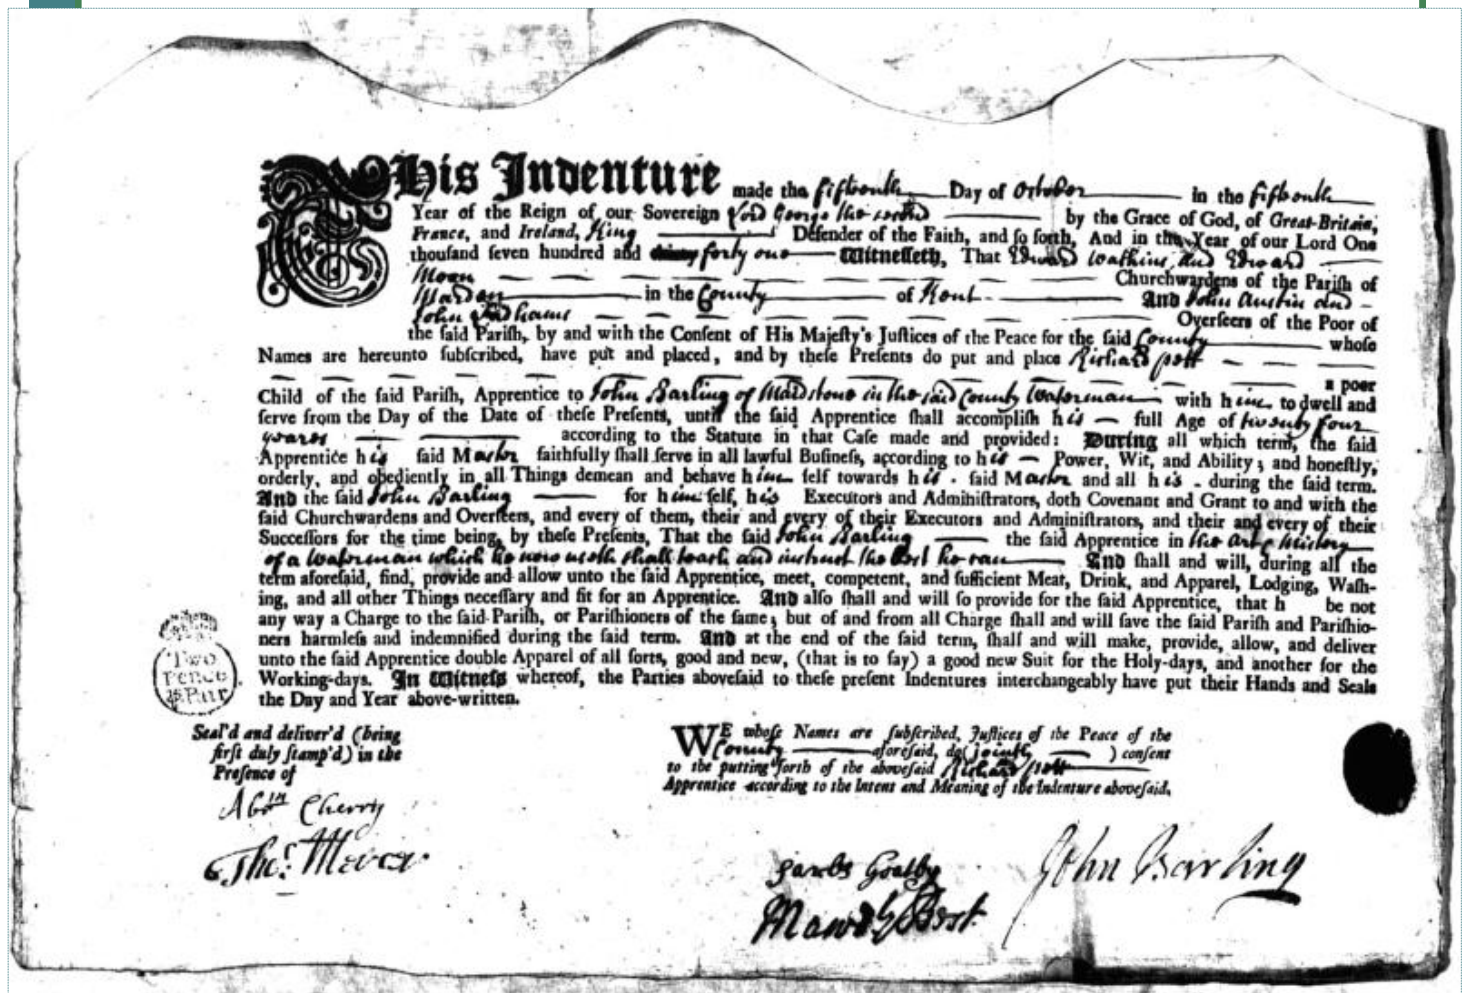 This Indenture made the fifteenth Day of October in the fifteenth
Year of the Reign of our Sovereign Lord George the second by the Grace of God, of Great-Britain,
France, and Ireland, King Defender of the Faith, and so forth, And in the Year of our Lord One
thousand seven hundred and thirty forty one Witnesseth, That Edward Watkins and Edward
Moon Churchwardens of the Parish of
Marden in the County of Kent And John Austin and
John Overseers of the Poor of
the said Parish, by and with the Consent of His Majesty's Justices of the Peace for the said County whose
Names are hereunto subscribed, have put and placed, and by these Presents do put and place Richard pott
a poor
Child of the said Parish, Apprentice to John Barling of Maidstone in the said County Waterman with him to dwell and
serve from the Day of the Date of these Presents, until the said Apprentice shall accomplish his full Age of twenty four
yeares according to the Statute in that Case made and provided: During all which term, the said
Apprentice his said Master faithfully shall serve in all lawful Business, according to his Power, Wit, and Ability; and honestly,
orderly, and obediently in all Things demean and behave him self towards his said Master and all his during the said term.
And the said John Barling for him self, his Executors and Administrators, doth Covenant and Grant to and with the
said Churchwardens and Overseers, and every of them, their and every of their Executors and Administrators, and their and every of their
Successors for the time being, by these Presents, That the said John Barling the said Apprentice in the art & mistery
of a waterman which he now useth shall teach and instruct the best he can And shall and will, during all the
term aforesaid, find, provide and allow unto the said Apprentice, meet, competent, and sufficient Meat, Drink, and Apparel, Lodging, Wash-
ing, and all other Things necessary and fit for an Apprentice. And also shall and will so provide for the said Apprentice, that h be not
any way a Charge to the said Parish, or Parishioners of the same; but of and from all Charge shall and will save the said Parish and Parishio-
ners harmless and indemnified during the said term. And at the end of the said term, shall and will make, provide, allow, and deliver
unto the said Apprentice double Apparel of all sorts, good and new, (that is to say) a good new Suit for the Holy-days, and another for the
Working-days. In Witness whereof, the Parties abovesaid to these present Indentures interchangeably have put their Hands and Seals
the Day and Year above-written.
Two
Pence
Pair
Seal'd and deliver'd (being
first duly stamp'd) in the
Presence of
Abrm Cherry
Thos. Mercer
WE whose Names are subscribed, Justices of the Peace of the
County aforesaid, do (jointly) consent
to the putting forth of the abovesaid Richard pott
Apprentice according to the Intent and Meaning of the Indenture abovesaid.
Best
John Barling